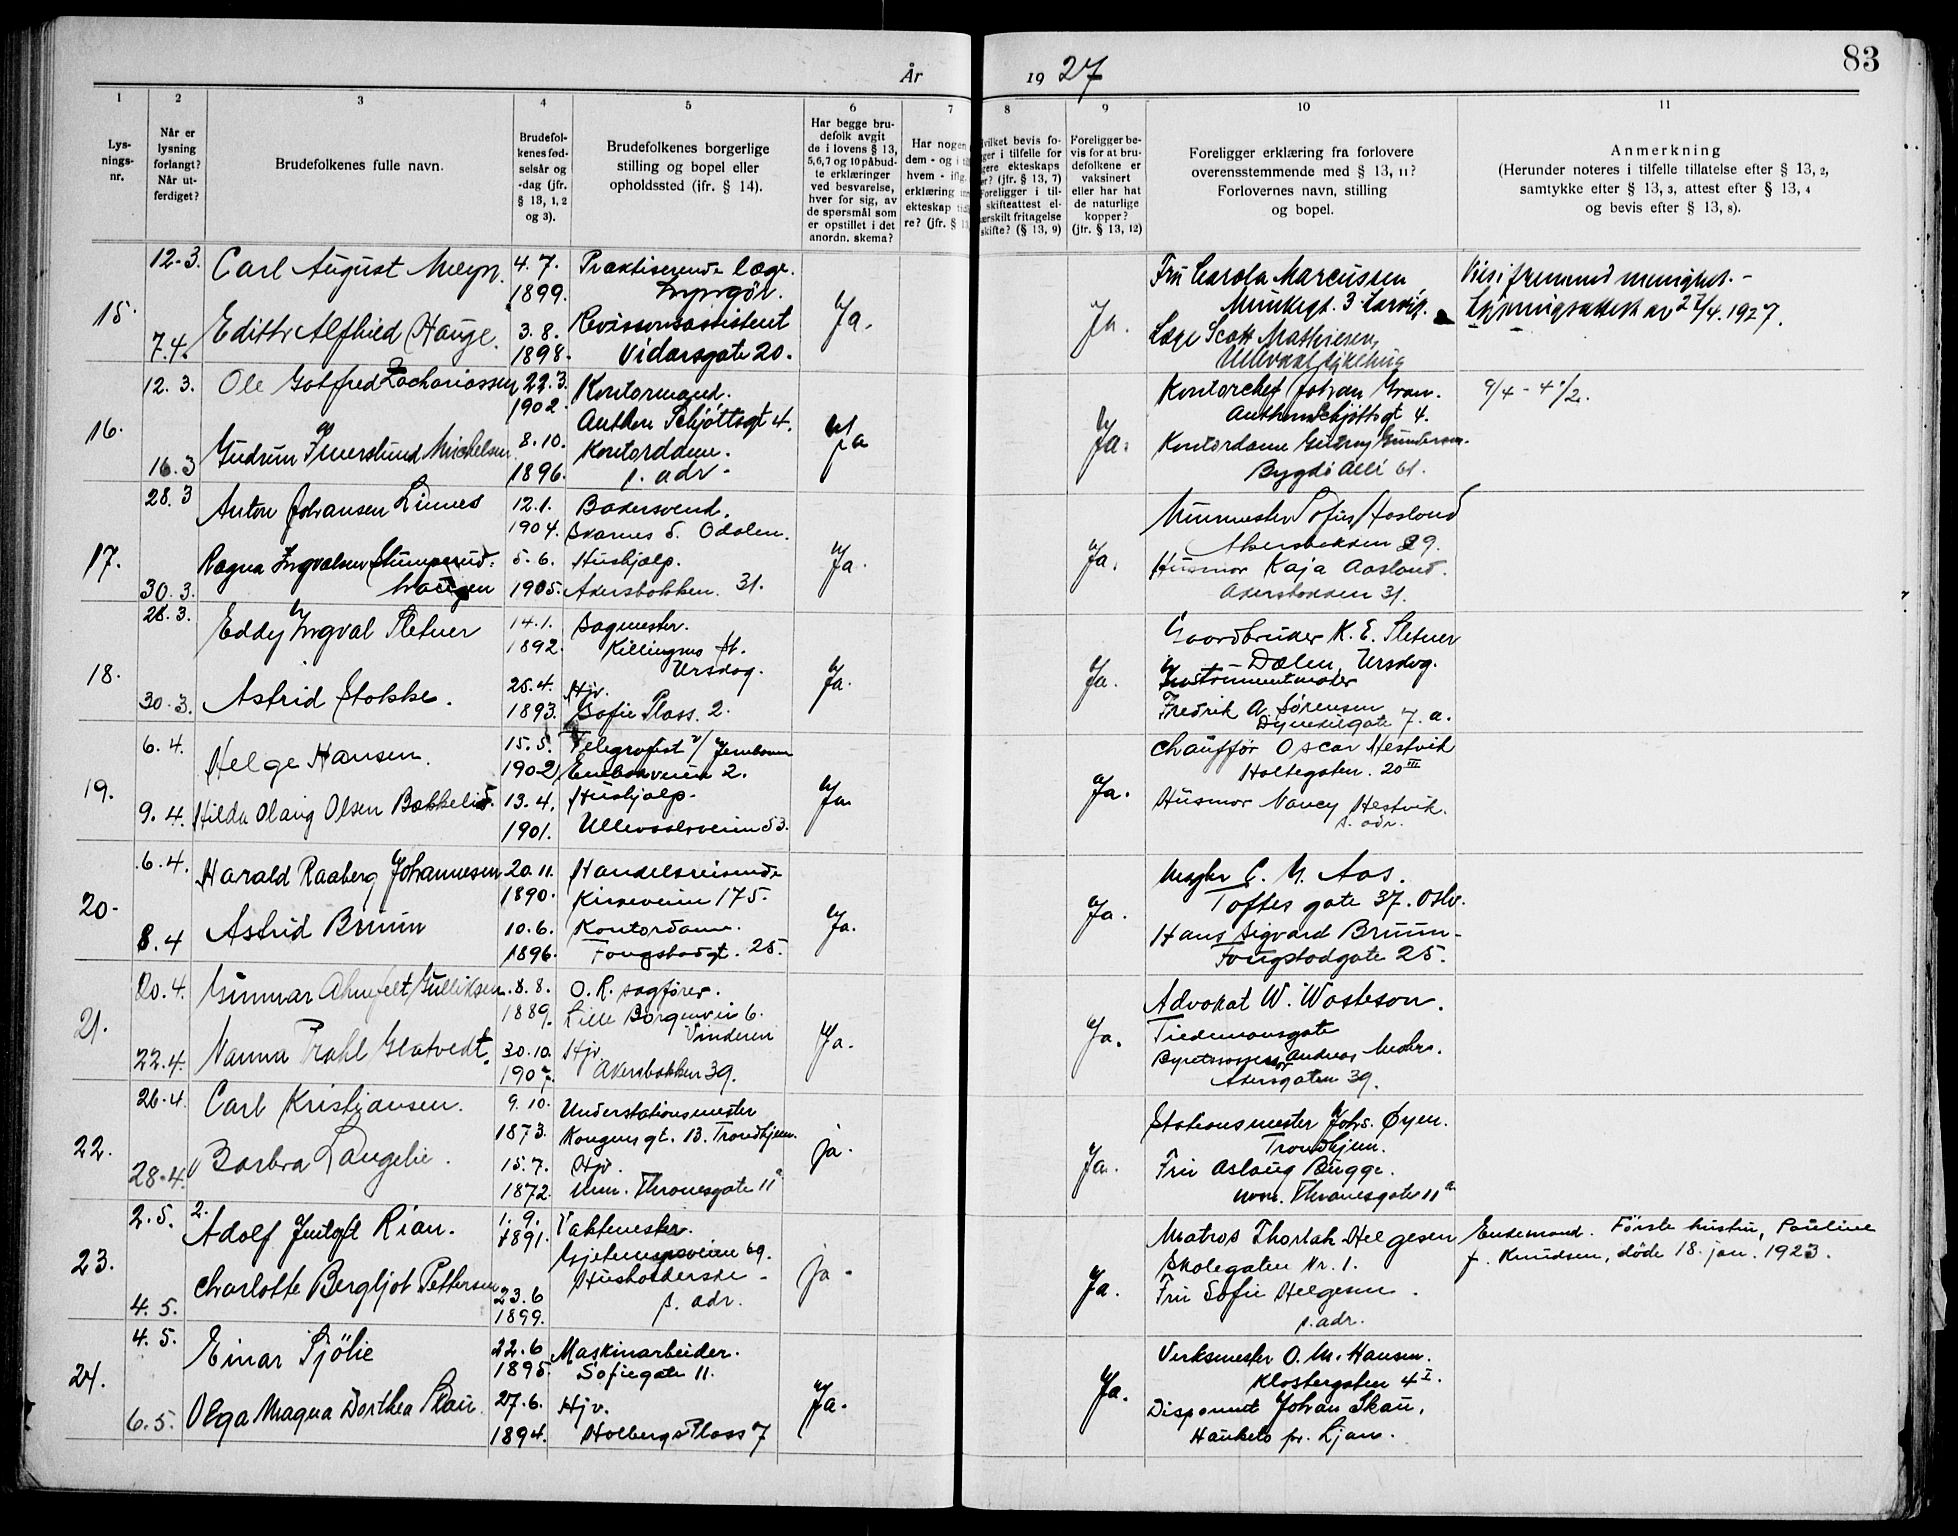 83
År 1927
1 2 3 4 5 6 7 8 9 10 11
Lys-
nings-
nr.
Når er
lysning
forlangt?
Når ut-
ferdiget?
Brudefolkenes fulle navn.
Brudefol-
kenes fød-
selsår og
-dag (jfr.
§ 13, 1, 2
og 3).
Brudefolkenes borgerlige
stilling og bopel eller
opholdssted (ifr. § 14).
Har begge bru-
defolk avgit
de i lovens § 13,
5, 6, 7 og 10 påbud-
te erklæringer
ved besvarelse,
hver for sig, av
de spørsmål som
er opstillet i det
anordn. skema?
Har nogen
dem - og i
hvem - ifig.
erklæring
ekteskap
re? (jfr. § 13,
vilket bevis fo-
ger i tilfelle for
gere ekteskaps
er? (jfr. § 13, 7)
Foreligger i til-
skifteattest el-
ærskilt fritagelse
skifte? (§ 13, 9)
Foreligger be-
vis for at bru-
defolkene er
vaksinert
eller har hat
de naturlige
kopper?
(jfr. § 13, 12)
Foreligger erklæring fra forlovere
overensstemmende med § 13, 11?
Forlovernes navn, stilling
og bopel.
Anmerkning
(Herunder noteres i tilfelle tillatelse efter § 13, 2,
samtykke efter § 13, 3, attest efter § 13, 4
og bevis efter § 13, 8).
15.
12.3.
7.4.
Carl August Meyn.
Edith Alfhild Hauge.
4.7.
1899.
3.8.
1898.
Praktiserende læge.
Lyngør.
Revisionsassistent
Vidarsgate 20.
Ja.
Ja.
Fru Carola Marcussen
Munkegt. 3 Larvik.
Læge Scott Mathiesen,
Ullevaal sykehus
Vies i fremmed menighet. -
Lysningsattest av 27/4.1927.
16.
12.3.
16.3
Ole Gotfred Zachariassen
Gudrun Furuslund Michelsen
22.3.
1902.
8.10.
1896.
Kontormand.
Anthon Schjøttsgt 4.
Kontordame.
s. adr.
Ja
Ja.
Kontorchef Johan Gran.
Anthon Schjøttsgt 4.
Kontordame Gudrun Gundersen.
Bygdø Allé 61.
9/4 - 4 1/2.
17.
28.3
30.3.
Anton Johansen Linnes
Ragna Ingvalsen Stumperud.
Haugen
12.1.
1904.
5.6.
1905.
Bakersvend.
Skarnes S. Odalen.
Hushjælp.
Akersbakken 31.
Ja.
Ja.
Murmester Sofus Aasland
Akersbakken 29.
Husmor Kaja Aasland.
Akersbakken 31.
18.
28.3.
30.3.
Eddy Yngval Sletner
Astrid Stokke.
14.1.
1892.
25.4.
1893.
Sagmester.
Killingmo st.
Ursdog.
Hjv.
Sofie Plass. 2.
Ja.
Ja.
Gaardbruker K. E. Sletner
Dælen, Ursdog.
Instrumentmaker
Fredrik A. Sørensen
Dynekilgate 7. a.
19.
6.4.
9.4.
Helge Hansen.
Hilda Olaug Olsen Bækkelid.
15.5.
1902
13.4.
1901.
Telegrafist v/ Jernbanen
Enebakveien 2.
Hushjælp.
Ullevaalsveien 53.
Ja.
Ja.
Chauffør Oscar Hestvik
Holtegaten. 20 III
Husmor Nancy Hestvik.
s. adr.
20.
6.4.
8.4
Harald Raaberg Johannesen
Astrid Bruun
20.11.
1890.
10.6.
1896.
Handelsreisende
Kirkeveien 175.
Kontordame.
Fougstadgt. 25.
Ja.
Ja.
Megler C. M. Aas.
Toftes gate 37. Oslo.
Hans Sigvard Bruun
Fougstadgate 25.
21.
20.4.
22.4.
Gunnar Ahnfelt Gulliksen
Nanna Prahl Glatvedt.
8.8.
1889.
30.10.
1907.
O.R. sagfører.
Lille Borgenvei 6.
Vinderen
Hjv.
Akersbakken 39.
Ja.
Ja.
Advokat W. Wasteson.
Tiedemansgate
Byretsassessor Andreas Mohr.
Akersgaten 39.
22.
26.4.
28.4.
Carl Kristiansen.
Barbra Langelie.
9.10.
1873.
15.7.
1872.
Understationsmester
Kongens gt. 13. Trondhjem.
Hjv.
Mm. Thranesgate 11 a
ja.
Ja.
Stationsmester Johs. Øyen.
Trondhjem.
Fru Aslaug Bugge.
Mm. Thranesgate 11 a
23.
2.5.
4.5.
2.
Adolf Jentoft Rian.
Charlotte Bergljot Pettersen
1.9.
1891.
23.6
1899.
Vaktmester.
Gjetemyrsveien 69.
Husholderske
s. adr.
ja.
Ja.
Matros Thorlak Helgesen
Skolegaten Nr. 1.
Fru Sofie Helgesen.
s. adr.
Enkemand. Første hustru, Pauline
f. Knudsen, døde 18. jan. 1923.
24.
4.5.
6.5.
Einar Sjölie
Olga Magna Dorthea Skau
22.6
1895.
27.6.
1894.
Maskinarbeider.
Sofiegate 11.
Hjv.
Holbergs Plass 7
Ja.
Ja.
Verksmester O. M. Hansen.
Klostergaten 4 I.
Disponent Johan Skau,
Hauketo pr. Ljan.